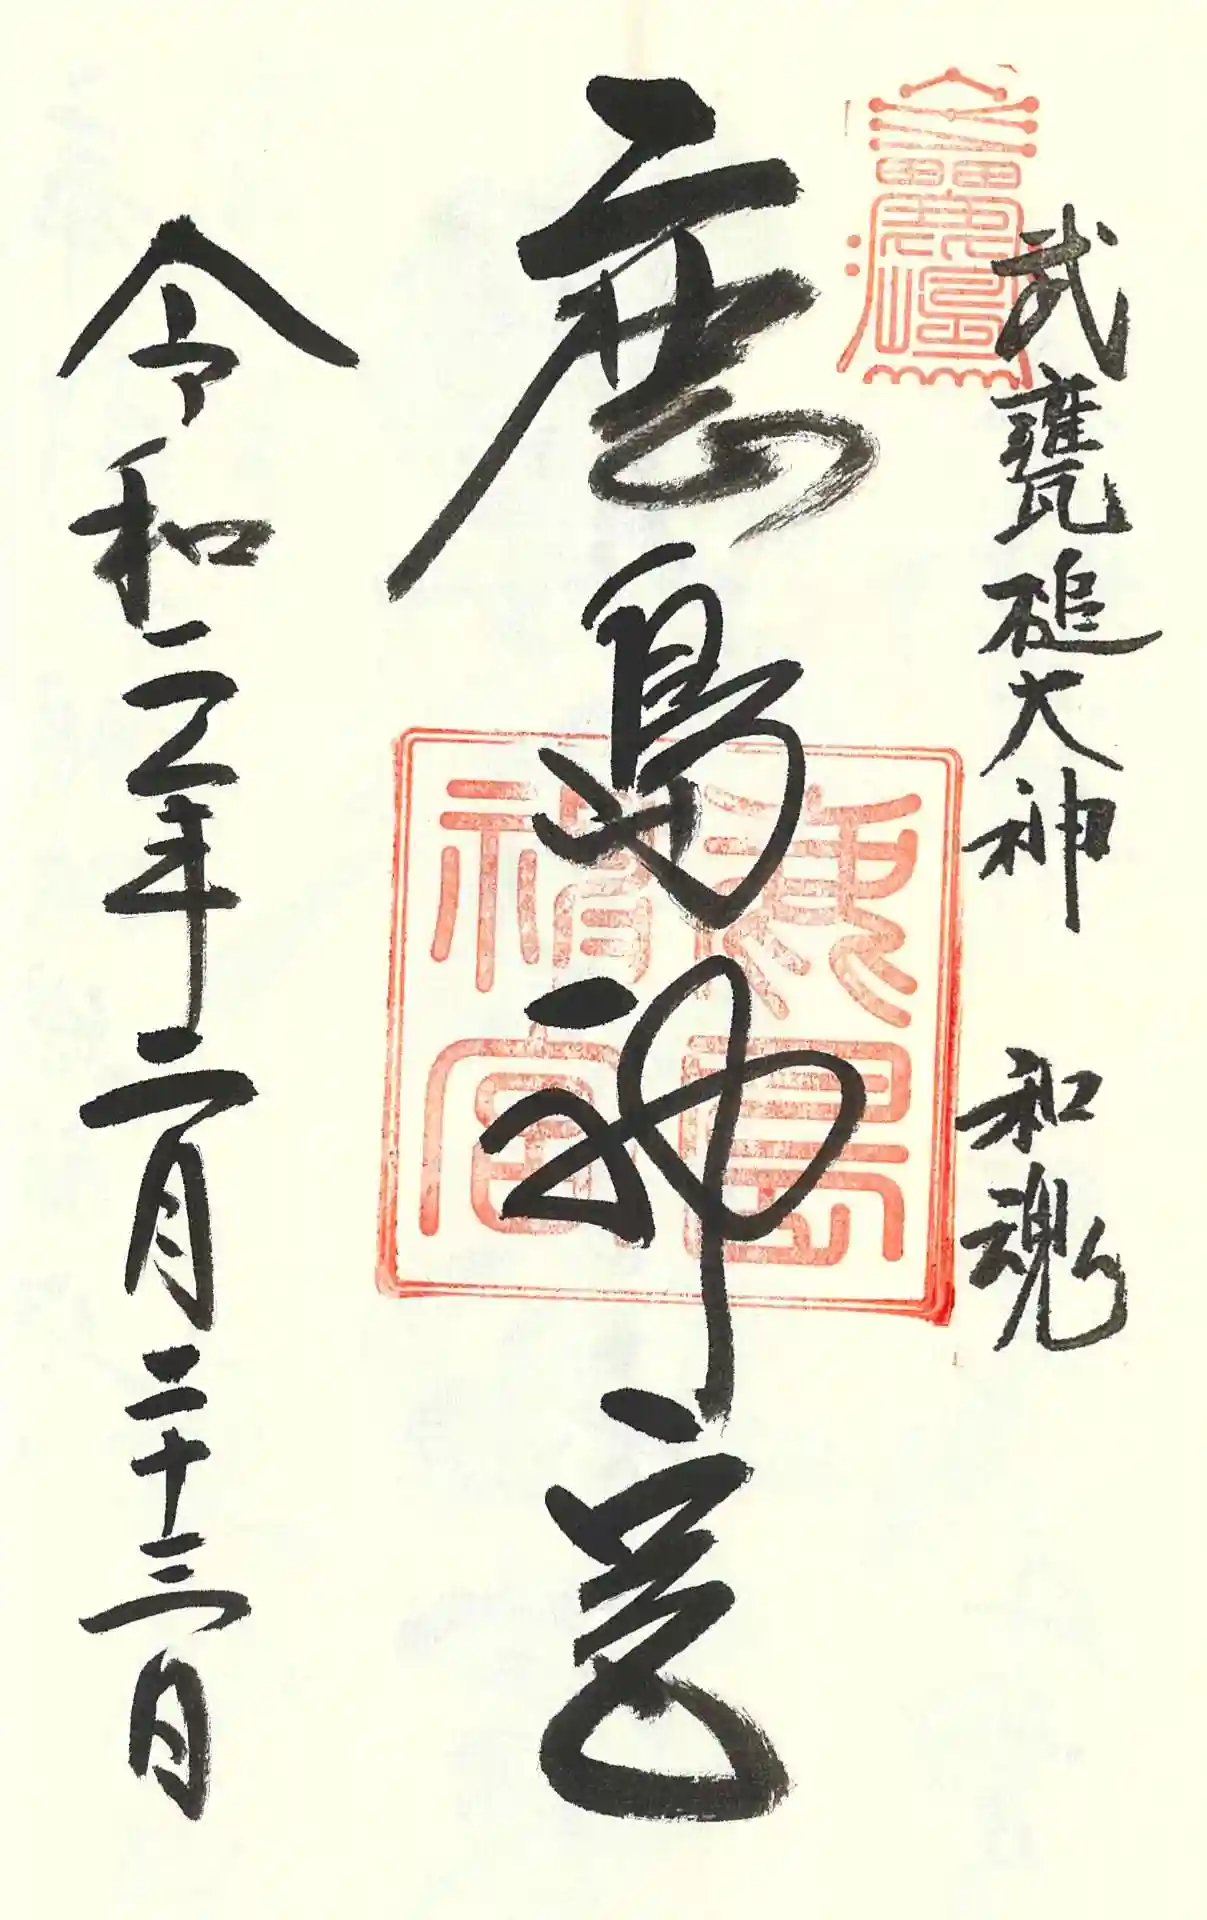 武甕槌大神 和魂
鹿島神宮
鹿島神宮
令和二年二月二十三日